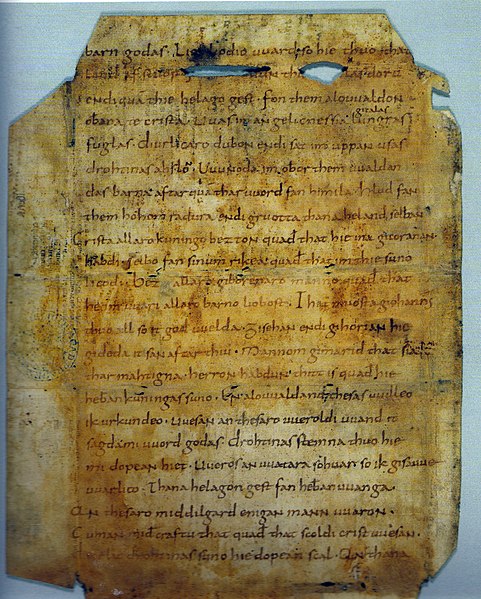 barn godas. hodio uuard so hie thuo that
land
endi quam thie helago gest. fon them alouualdon
obana te crista. Uuas im an gelicnessia lungras
fuglas. diurlicaro dubon endi sat im uppan usas
drohtinas ahslu. Uuunoda im ober them uualdan
das barna. aftar quam thar uuord fan himila. hlud fan
them hohom radura endi gruotta thana heland selban
Crista allaro kuningo bezton quad that hie ina gicoranan
habdi. selbo fan sinum rikea. quad that im thie suno
licodi. bezt allaro giboranaro manno quad that
he im uuari allaro barno liobost. That muosta giohannes
thuo all so it god uuelda. Gisehan endi gihorian hie
gideda it san aftar thiu. Mannom gimarid that sia
thar mahtigna. herron habdun thitt is quad hie
heban kuningas suno. En alouualdand thesas uuilleo
ik urkundeo. Uuesan an thesaro uueroldi uuand it
sagda mi uuord godas. drohtinas stemna thuo hie
mi dopean hiet. Uueros an uuatara so huar so ik gisauue
uuarlico. Thana helagon gest fan hebanuuanga.
An thesaro middilgard enigan mann uuaron.
Cuman mid craftu that quad that scoldi crist uuesan.
diurlic drohtinas suno hie dopean scal. An thana